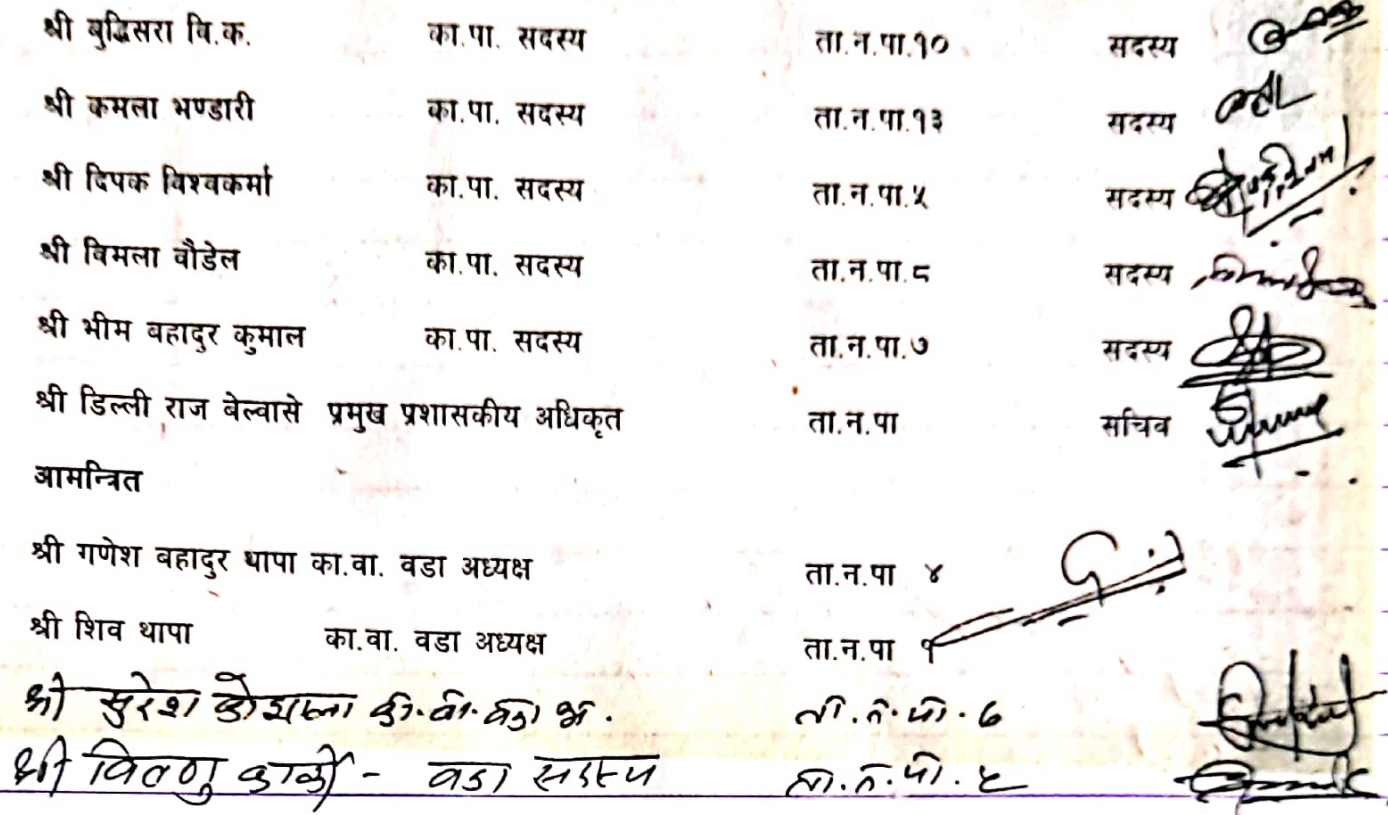 श्री बुद्धिसरा वि.क. का.पा. सदस्य ता.न.पा.१० सदस्य
श्री कमला भण्डारी का.पा. सदस्य ता.न.पा.१३ सदस्य
श्री दिपक विश्वकर्मा का.पा. सदस्य ता.न.पा.५ सदस्य
श्री विमला पौडेल का.पा. सदस्य ता.न.पा.८ सदस्य
श्री भीम बहादुर कुमाल का.पा. सदस्य ता.न.पा.७ सदस्य
श्री डिल्ली राज बेल्वासे प्रमुख प्रशासकीय अधिकृत ता.न.पा सचिव
आमन्त्रित
श्री गणेश बहादुर थापा का.वा. वडा अध्यक्ष ता.न.पा ४
श्री शिव थापा का.वा. वडा अध्यक्ष ता.न.पा १
श्री सुरेश का.वा.वडा अ. ता.न.पा.७
श्री विष्णु कार्की - वडा सदस्य ता.न.पा.